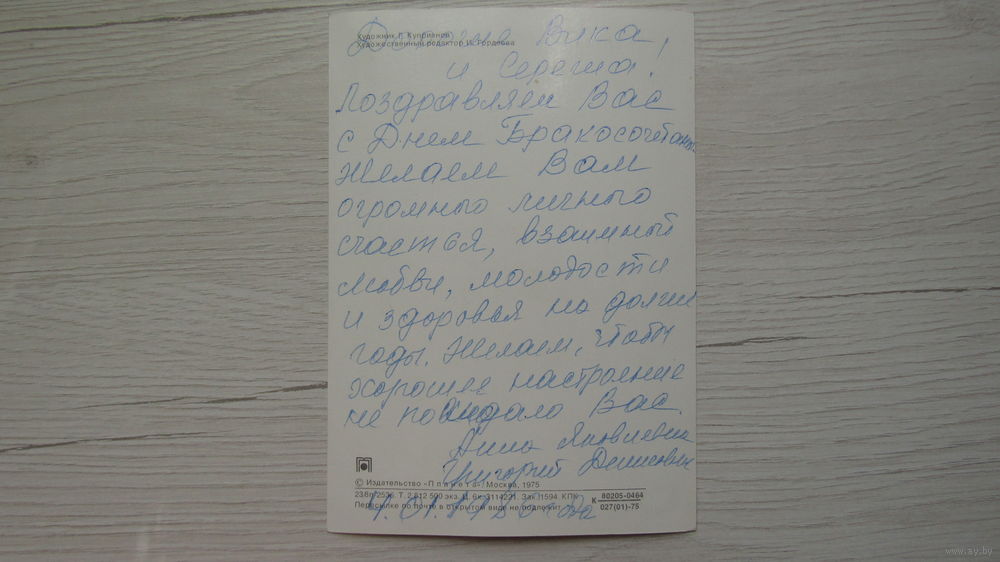 Художник Г. Куприянов
Художественный редактор И. Гордеева
Дорогие Вика,
и Сережа!
Поздравляем Вас
с Днем Бракосочетания.
Желаем Вам
огромного личного
счастья, взаимной
любви, молодости
и здоровья на долгие
годы. Желаем, чтобы
хорошее настроение
не покидало Вас.
Анна Яковлевна
Григорий Денисович
© Издательство «Планета» Москва, 1975
238л/2536. Т. 2 612 500 экз. Ц. 6к. 3114221. Зак. 1594 КПК
К 80205-0464
027(01)-75
Пересылке по почте в открытом виде не подлежит
www.ay.by